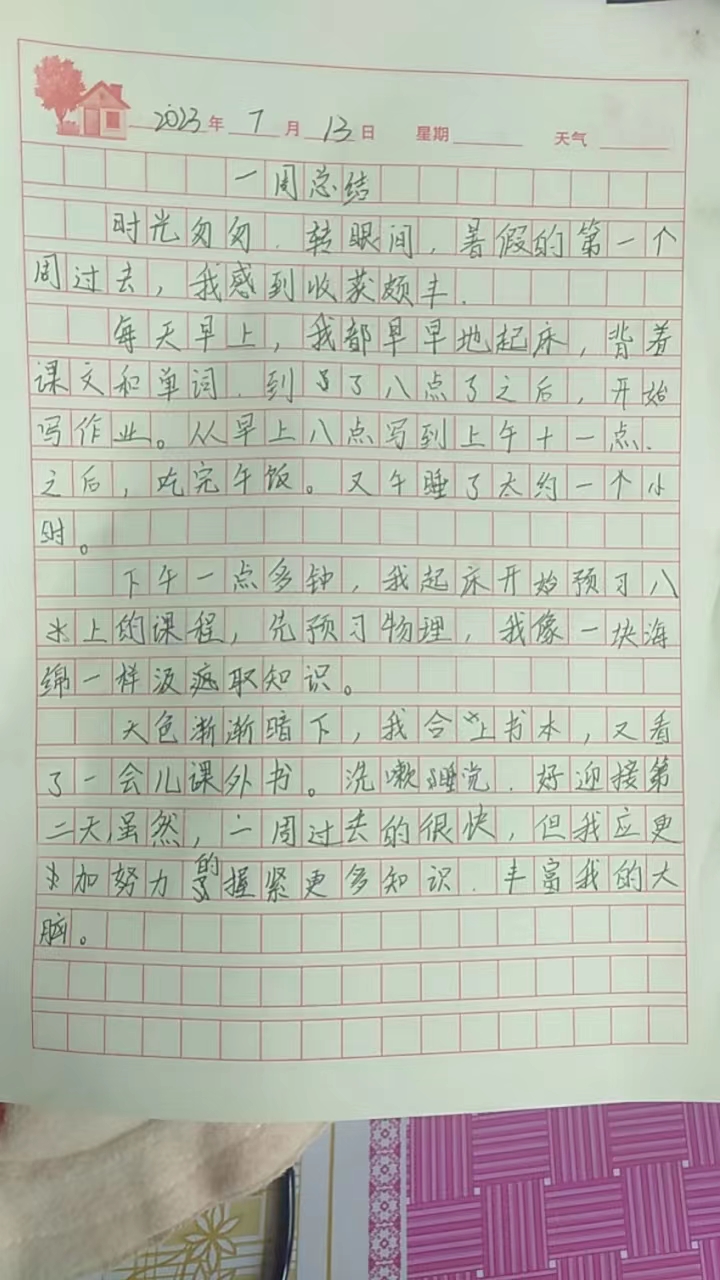 2023年7月13日 星期 天气
一周总结
时光匆匆.转眼间,暑假的第一个
周过去,我感到收获颇丰.
每天早上,我都早早地起床,背着
课文和单词.到了八点了之后,开始
写作业。从早上八点写到上午十一点.
之后,吃完午饭。又午睡了大约一个小
时。
下午一点多钟,我起床开始预习八
上的课程,先预习物理,我像一块海
绵一样汲取知识。
天色渐渐暗下,我合上书本,又看
了一会儿课外书。洗漱睡觉.好迎接第
二天,虽然,一周过去的很快,但我应更
加努力的握紧更多知识.丰富我的大
脑。